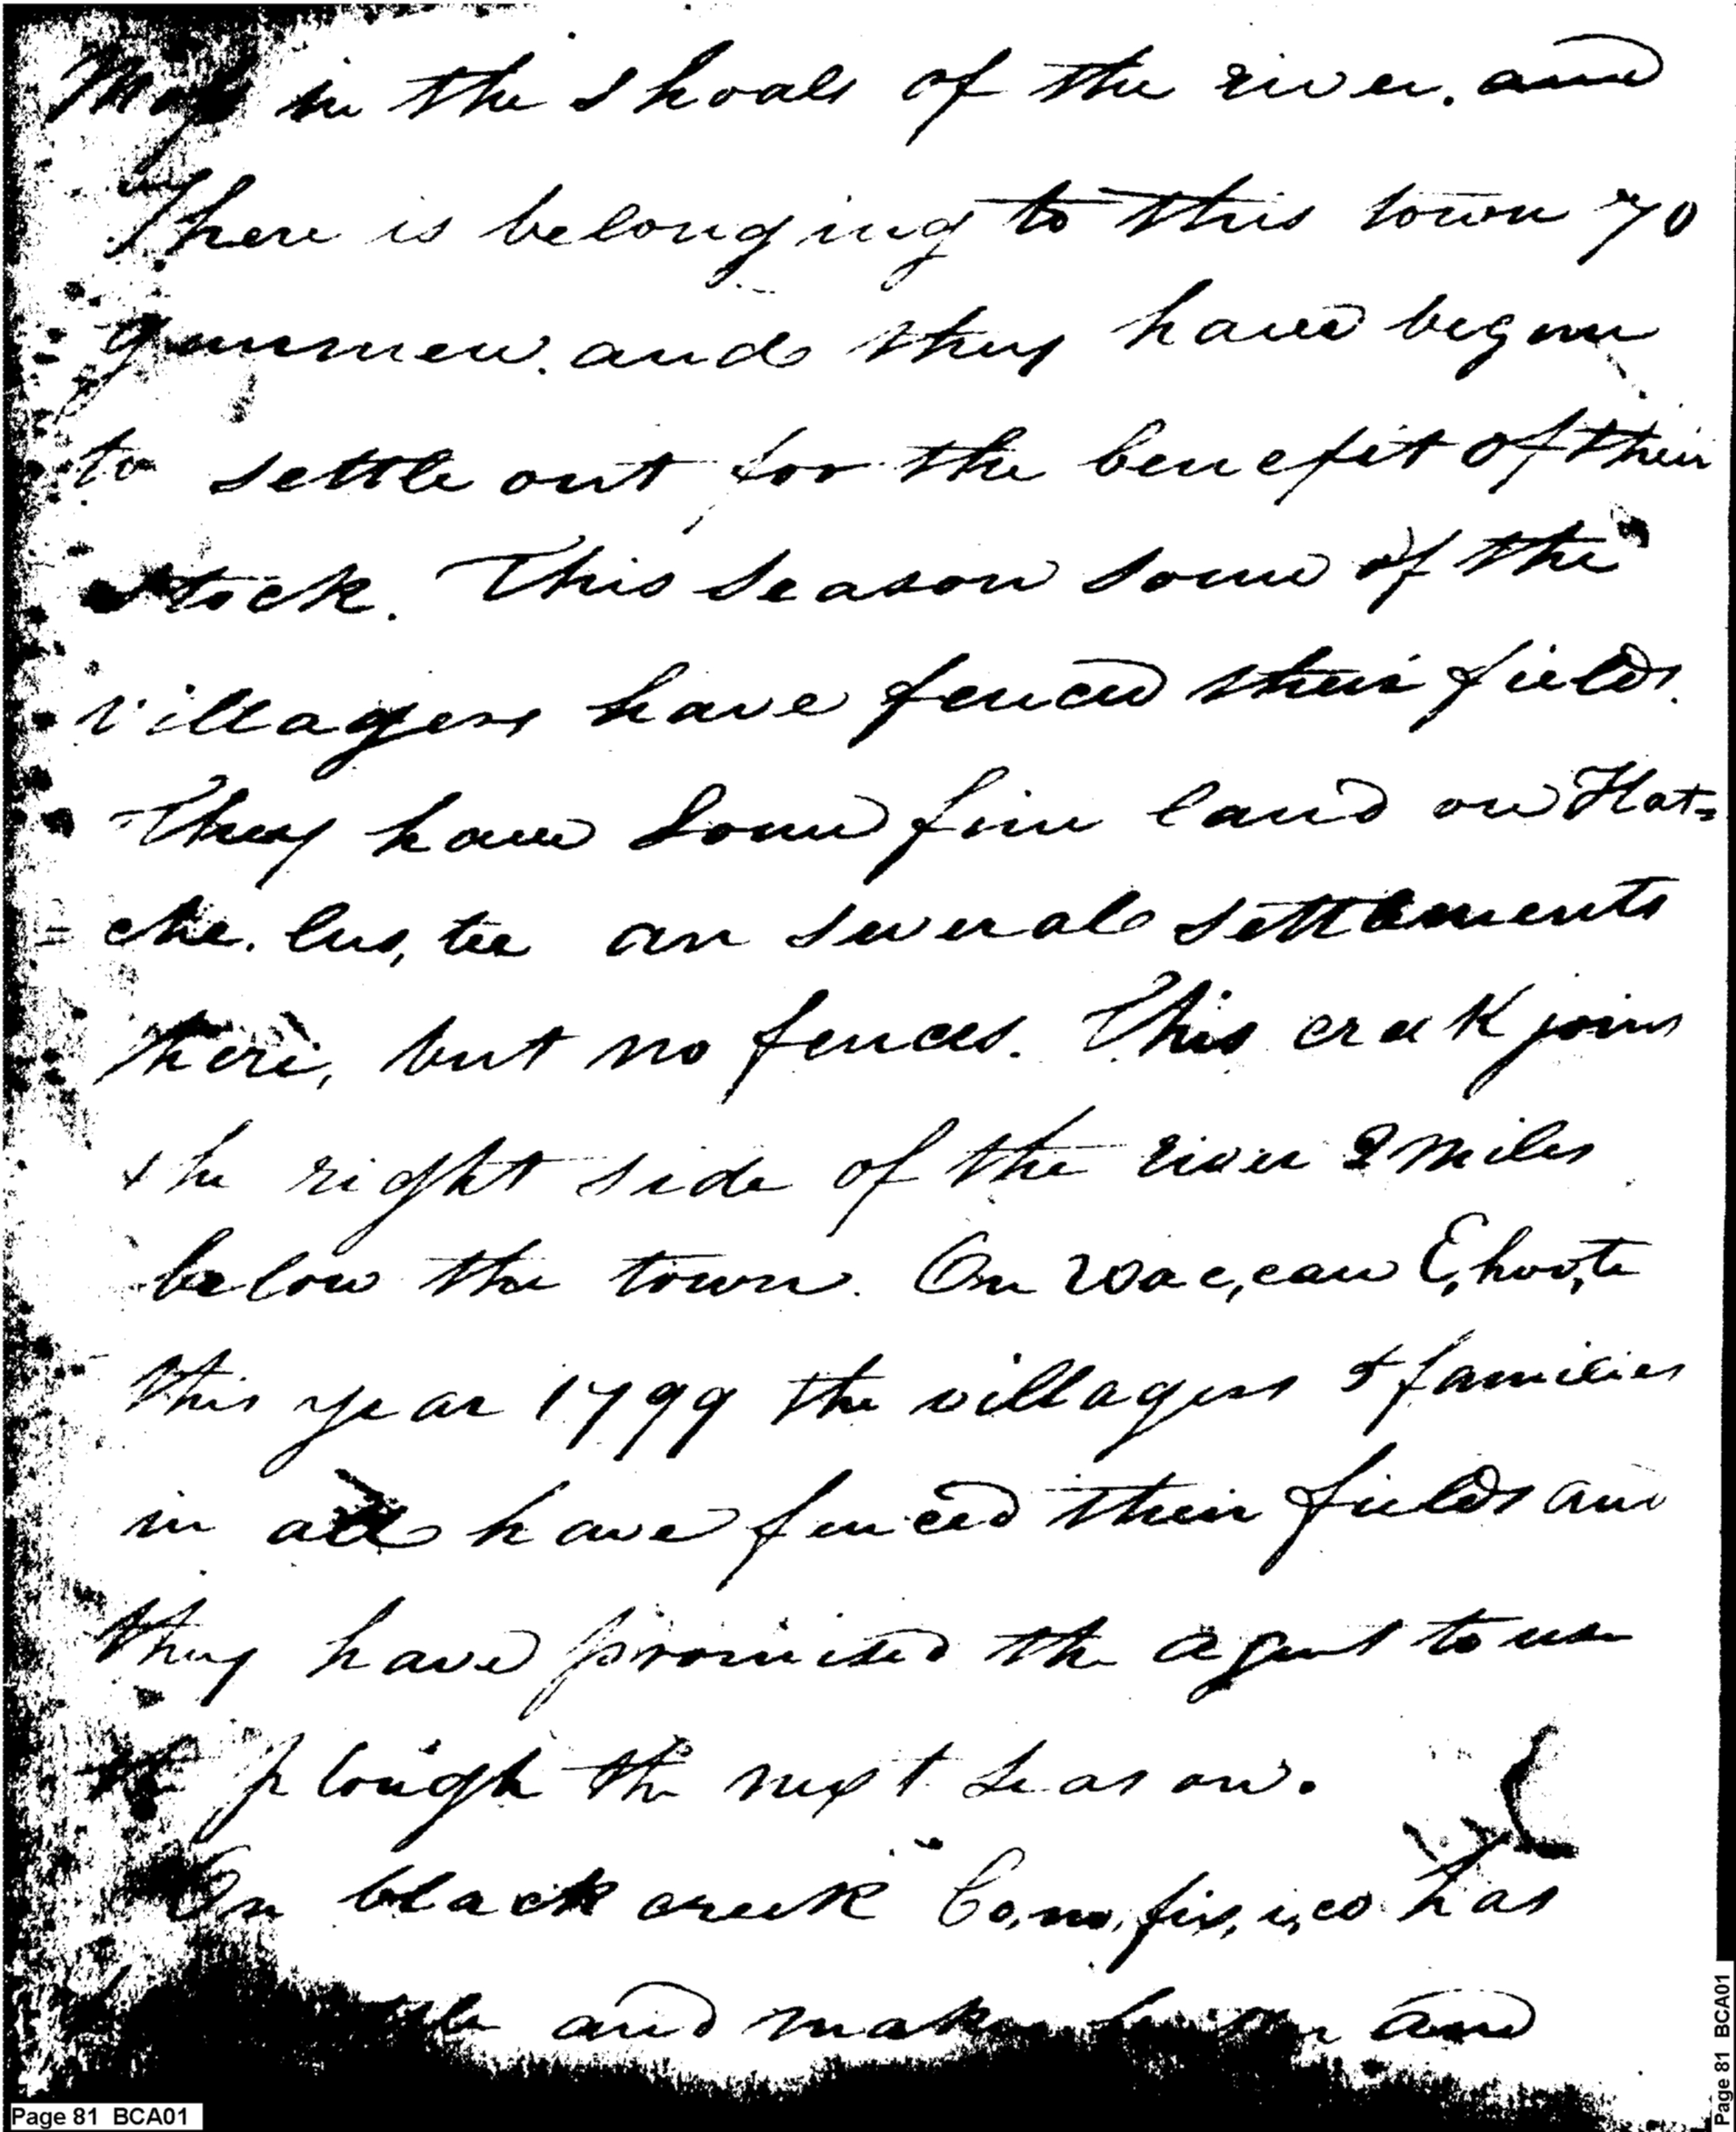 in the shoals of the river. and
There is belonging to this town 70
gunmen. and they have begun
to settle out for the benefit of their
stock. This season some of the
villagers have fenced their fields.
They have some fine land on Hat=
che. lus, tee an several settlements
there, but no fences. This creek joins
the right side of the river 2 miles
below the town. On Wac,cau E,hoo,te
this year 1799 the villagers 5 families
in all have fenced their fields and
they have promised the agent to use
the plough the next season.
On black creek Co,no,fix,i,co has
and make and
Page 81 BCA01
Page 81 BCA01